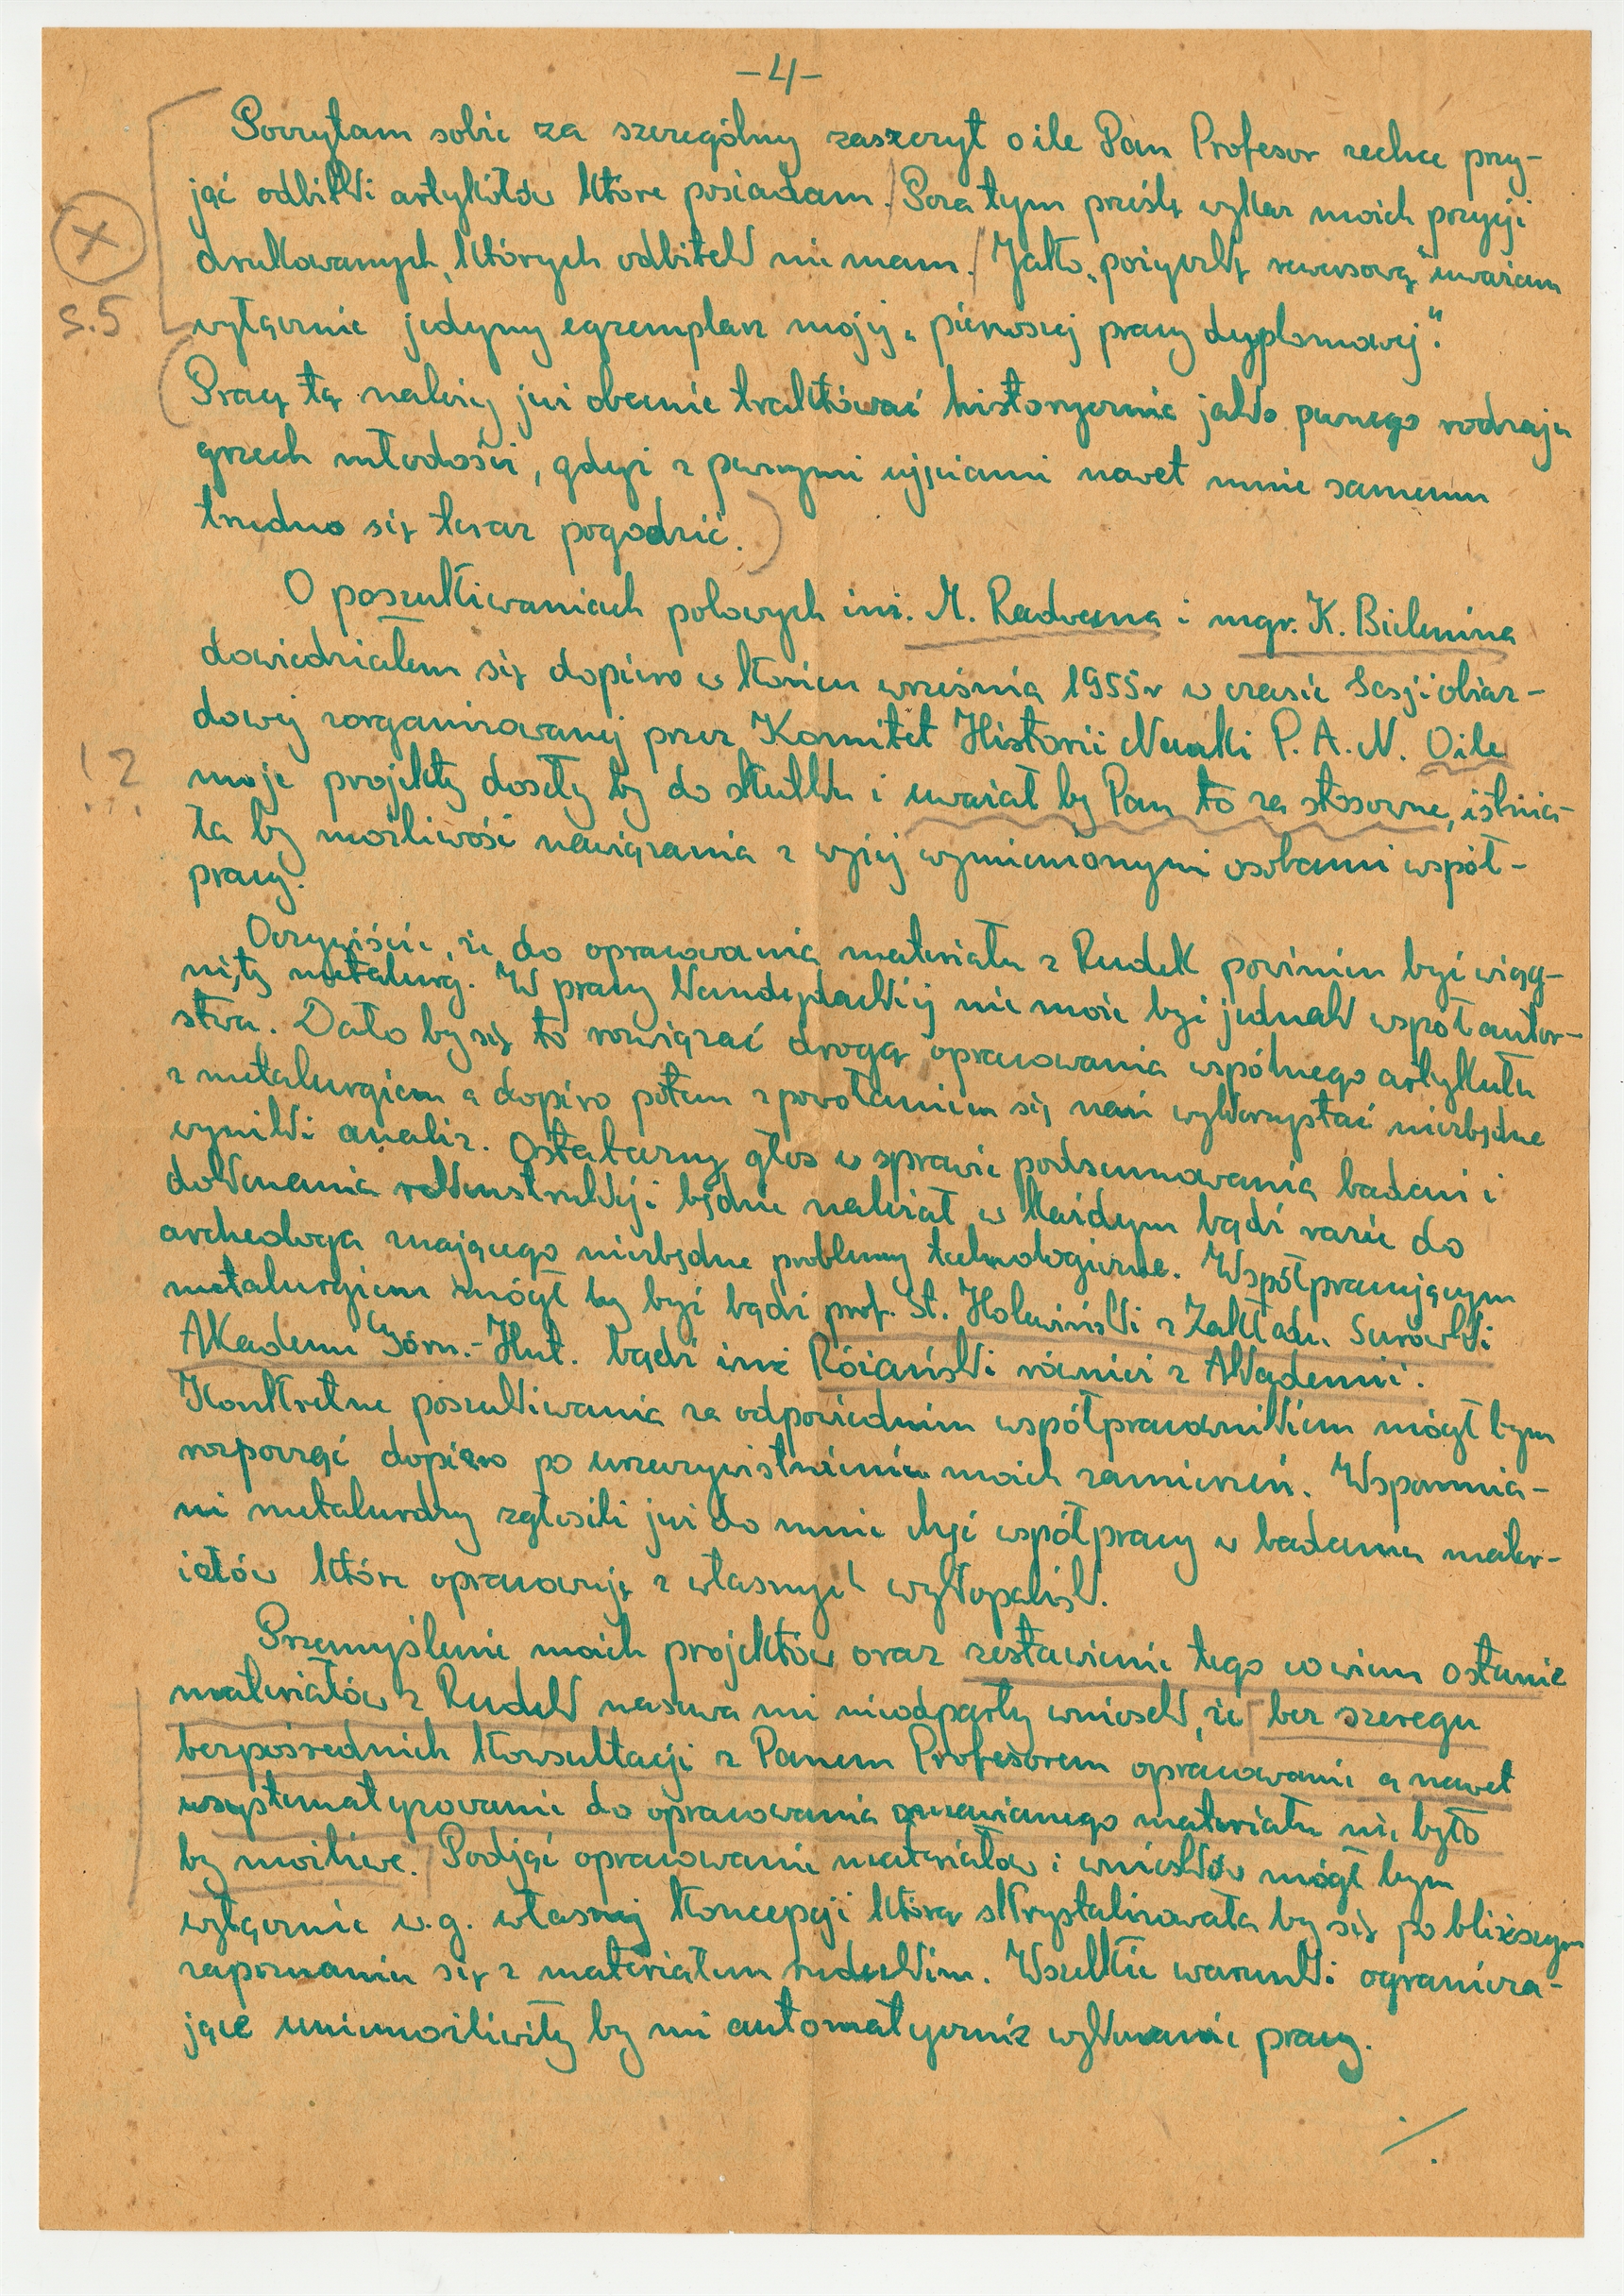 -4-
Poczytam sobie za szczególny zaszczyt o ile Pan Profesor zechce przy-
jąć odbitki artykułów które posiadam. Poza tym prześlę wykaz moich pozycji
drukowanych, których odbitek nie mam. Jako „pożyczkę rewersową" uważam
wyłącznie jedyny egzemplarz mojej „pierwszej pracy dyplomowej".
Pracę tę należy już obecnie traktować historycznie jako pewnego rodzaju
grzech młodości, gdyż z pewnymi ujęciami nawet mnie samemu
trudno się teraz pogodzić.
X
s.5
O poszukiwaniach polowych inż. M. Radwana i mgr. K. Bielenina
dowiedziałem się dopiero w końcu września 1955r w czasie Sesji obiaz-
dowej zorganizowanej przez Komitet Historii Nauki P. A. N. O ile
moje projekty doszły by do skutku i uważał by Pan to za stosowne, istnia-
ła by możliwość nawiązania z wyżej wymienionymi osobami współ-
pracy.
! ?
Oczywiście, że do opracowania materiału z Rudek powinien być wciąg-
nięty metalurg. W pracy kandydackiej nie może być jednak współautor-
stwa. Dało by się to rozwiązać drogą opracowania wspólnego artykułu
z metalurgiem a dopiero potem z powołaniem się nań wykorzystać niezbędne
wyniki analiz. Ostateczny głos w sprawie podsumowania badań i
dokonania rekonstrukcji będzie należał w każdym bądź razie do
archeologa znającego niezbędne problemy technologiczne. Współpracującym
metalurgiem mógł by być bądź prof. St. Holewiński z Zakładu Surówki
Akademii Górn.-Hut. bądź inż Różański również z Akademii.
Konkretne poszukiwania za odpowiednim współpracownikiem mógł bym
rozpocząć dopiero po urzeczywistnieniu moich zamierzeń. Wspomnia-
ni metalurdzy zgłosili już do mnie chęć współpracy w badaniu mater-
iałów które opracowuję z własnych wykopalisk.
Przemyślenie moich projektów oraz zestawienie tego co wiem ostanie
materiałów z Rudek nasuwa mi nieodparty wniosek, że bez szeregu
bezpośrednich konsultacji z Panem Profesorem opracowanie a nawet
usystematyzowanie do opracowania omawianego materiału nie było
by możliwe. Podjąć opracowanie materiałów i wniosków mógł bym
wyłącznie w.g. własnej koncepcji która skrystalizowała by się po bliższym
zapoznaniu się z materiałem rudeckim. Wszelkie warunki ogranicza-
jące uniemożliwiły by mi automatycznie wykonanie pracy.
./.